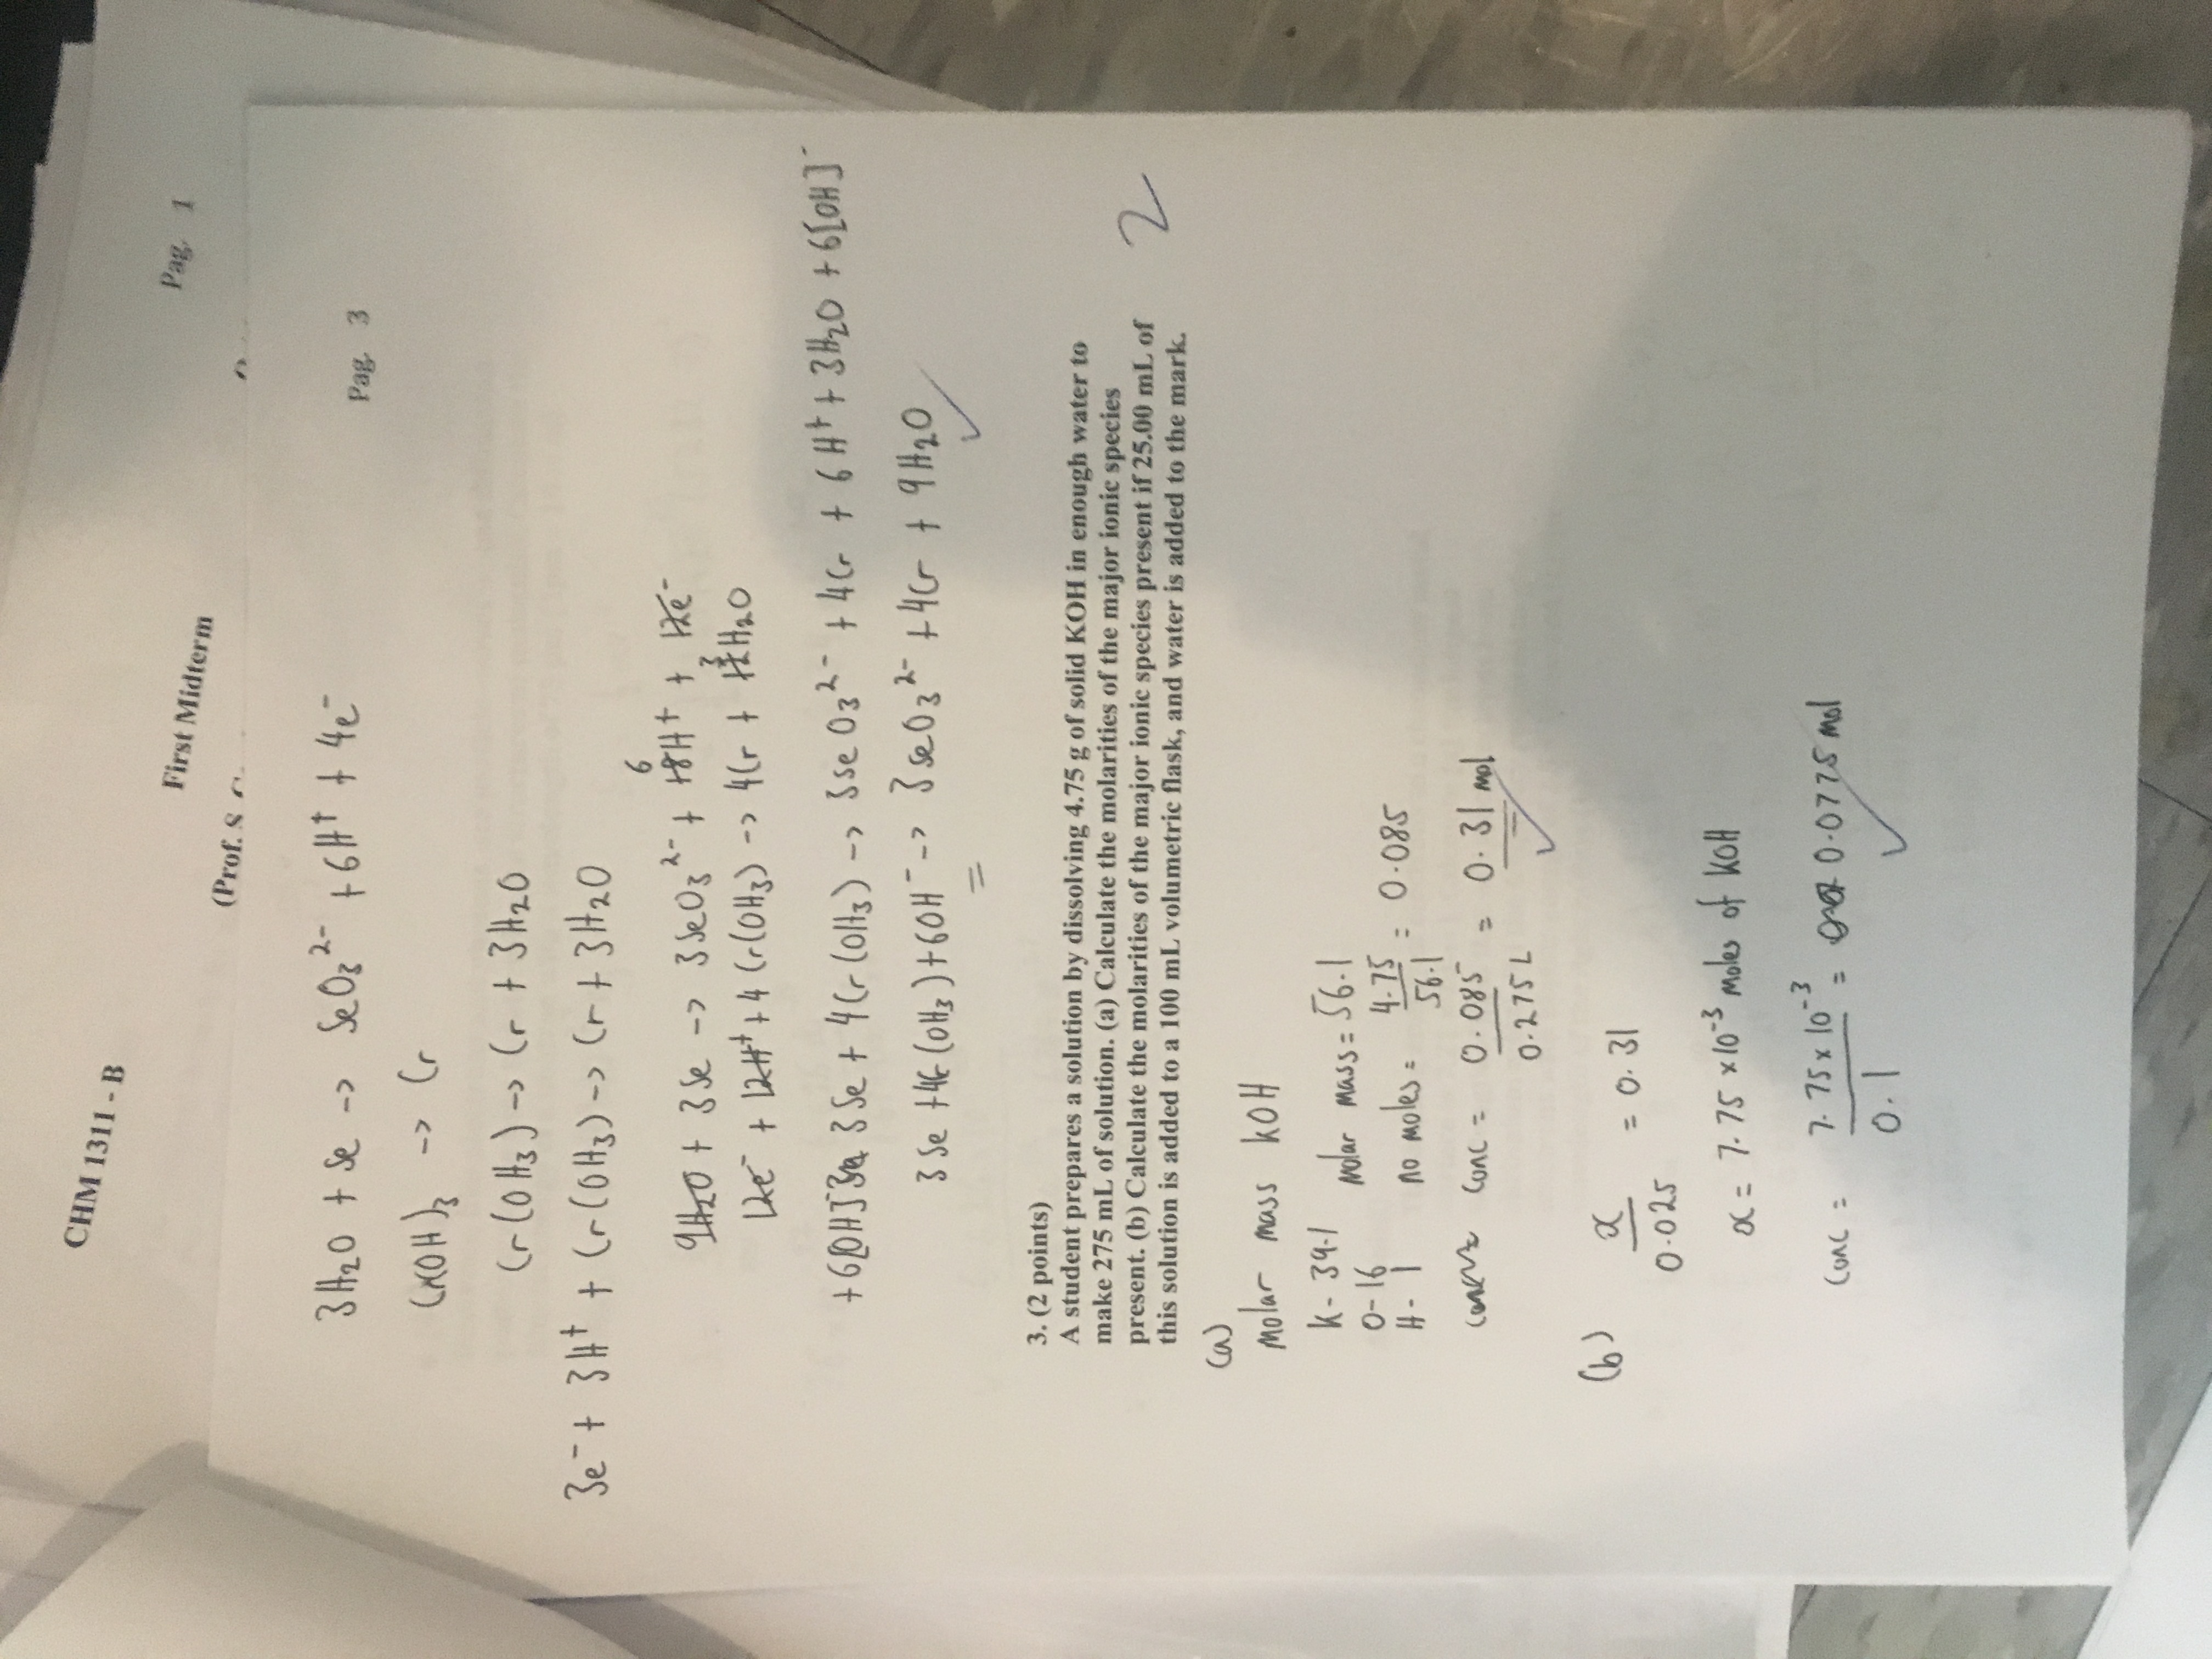 CHM 1311 - B
First Midterm
Pag 1
(Prof. S
Pag 3
3H₂O + Se -> SeO₃²⁻ + 6H⁺ + 4e⁻
Cr(OH)₃ -> Cr
Cr(OH₃) -> Cr + 3H₂O
3e⁻ + 3H⁺ + Cr(OH₃) -> Cr + 3H₂O
9H₂O + 3Se -> 3SeO₃²⁻ + 6 18H⁺ + 12e⁻
12e⁻ + 12H⁺ + 4Cr(OH₃) -> 4Cr + 3 12H₂O
+6[OH]⁻ 3Se + 4Cr(OH₃) -> 3SeO₃²⁻ + 4Cr + 6H⁺ + 3H₂O + 6[OH]⁻
3Se + 4Cr(OH₃) + 6OH⁻ -> 3SeO₃²⁻ + 4Cr + 9H₂O
3. (2 points)
A student prepares a solution by dissolving 4.75 g of solid KOH in enough water to
make 275 mL of solution. (a) Calculate the molarities of the major ionic species
present. (b) Calculate the molarities of the major ionic species present if 25.00 mL of
this solution is added to a 100 mL volumetric flask, and water is added to the mark.
2
(a)
Molar mass KOH
K - 39.1 Molar mass = 56.1
O - 16 no moles = 4.75/56.1 = 0.085
H - 1
conc = 0.085/0.275 L = 0.31 mol
(b)
x/0.025 = 0.31
x = 7.75 x 10⁻³ moles of KOH
conc = 7.75 x 10⁻³/0.1 = 0.0775 mol